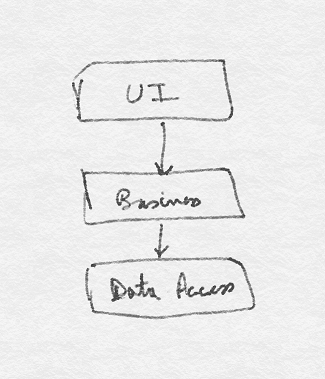 UI
Business
Data Access